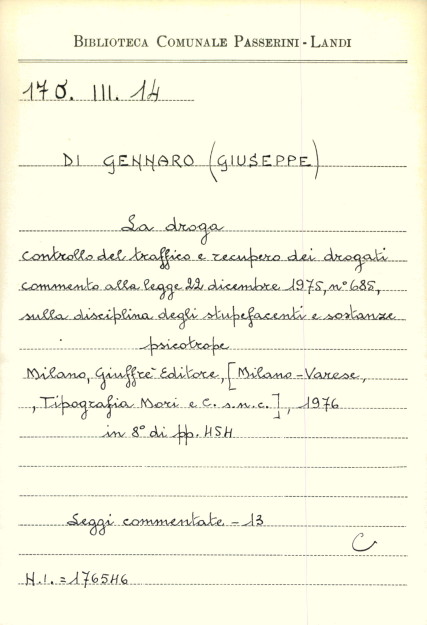 BIBLIOTECA COMUNALE PASSERINI-LANDI
170. III. 14
DI GENNARO (GIUSEPPE)
La droga
controllo del traffico e recupero dei drogati
commento alla legge 22 dicembre 1975, n° 685,
sulla disciplina degli stupefacenti e sostanze
psicotrope
Milano, Giuffrè Editore, [Milano-Varese,
, Tipografia Mori e C. s.n.c.], 1976
in 8° di pp. 454
Leggi commentate - 13
C
N.I. = 176546